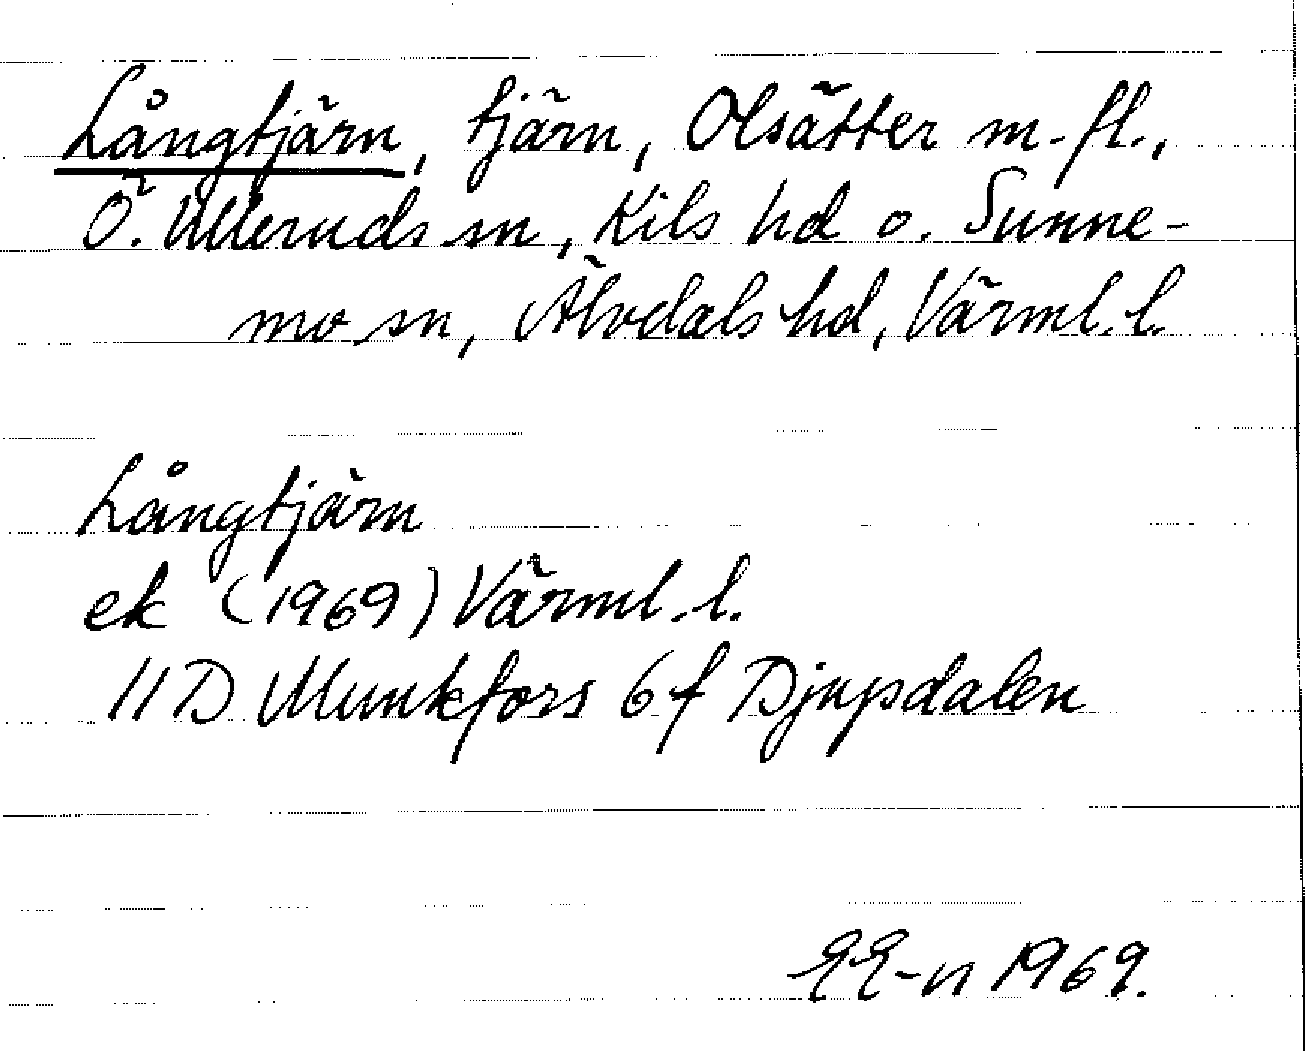 Långtjärn, tjärn, Olsätter m.fl.,
Ö. Ulleruds sn, Kils hd o. Sunne-
mo sn, Älvdals hd, Värml.l.
Långtjärn
ek (1969) Värml.l.
11D Munkfors 6f Djupdalen
EE-n 1969.